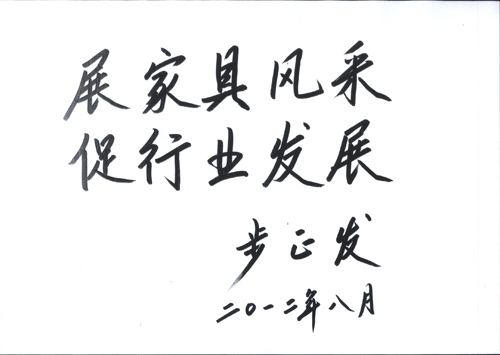 展家具风采
促行业发展
步正发
二〇一二年八月